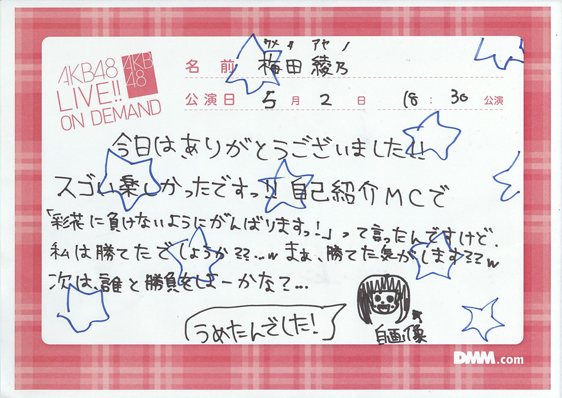 AKB48
LIVE!!
ON DEMAND
AKB
48
ウメダ アヤノ
名前 梅田綾乃
公演日 5月2日 18:30公演
今日は、ありがとうございました!!
スゴい楽しかったですっ!! 自己紹介MCで
「彩花に負けないようにがんばりますっ!」って言ったんですけど、
私は勝てたでしょうか??...w まぁ、勝てた気がします??w
次は、誰と勝負をしよーかなて...
うめたんでした!
自画像
DMM.com